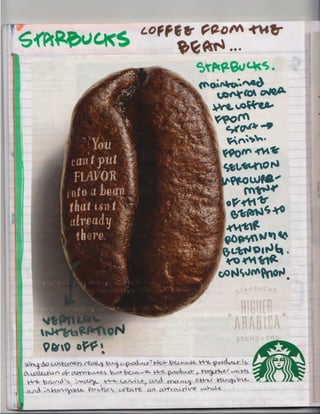 STARBUCKS
COFFEE FROM THE
BEAN...
STARBUCKS.
maintained
control over
the coffee
FROM
start →
Finish.
FROM THE
SELECTION
& PROCURE-
MENT
OF THE
BEANS to
THEIR
ROASTING &
BLENDING.
TO THEIR
CONSUMPTION.
You
can't put
FLAVOR
into a bean
that isn't
already
there.
STARBUCKS
HIGHER
"ARABICA"
STANDARDS
VERTICAL
INTEGRATION
PAID OFF!
Why do customers really buy a product? Not because the product is
a collection of attributes but because the product, together with
the brand's image, the service, and many other tangible
and intangible factors, create an attractive whole...